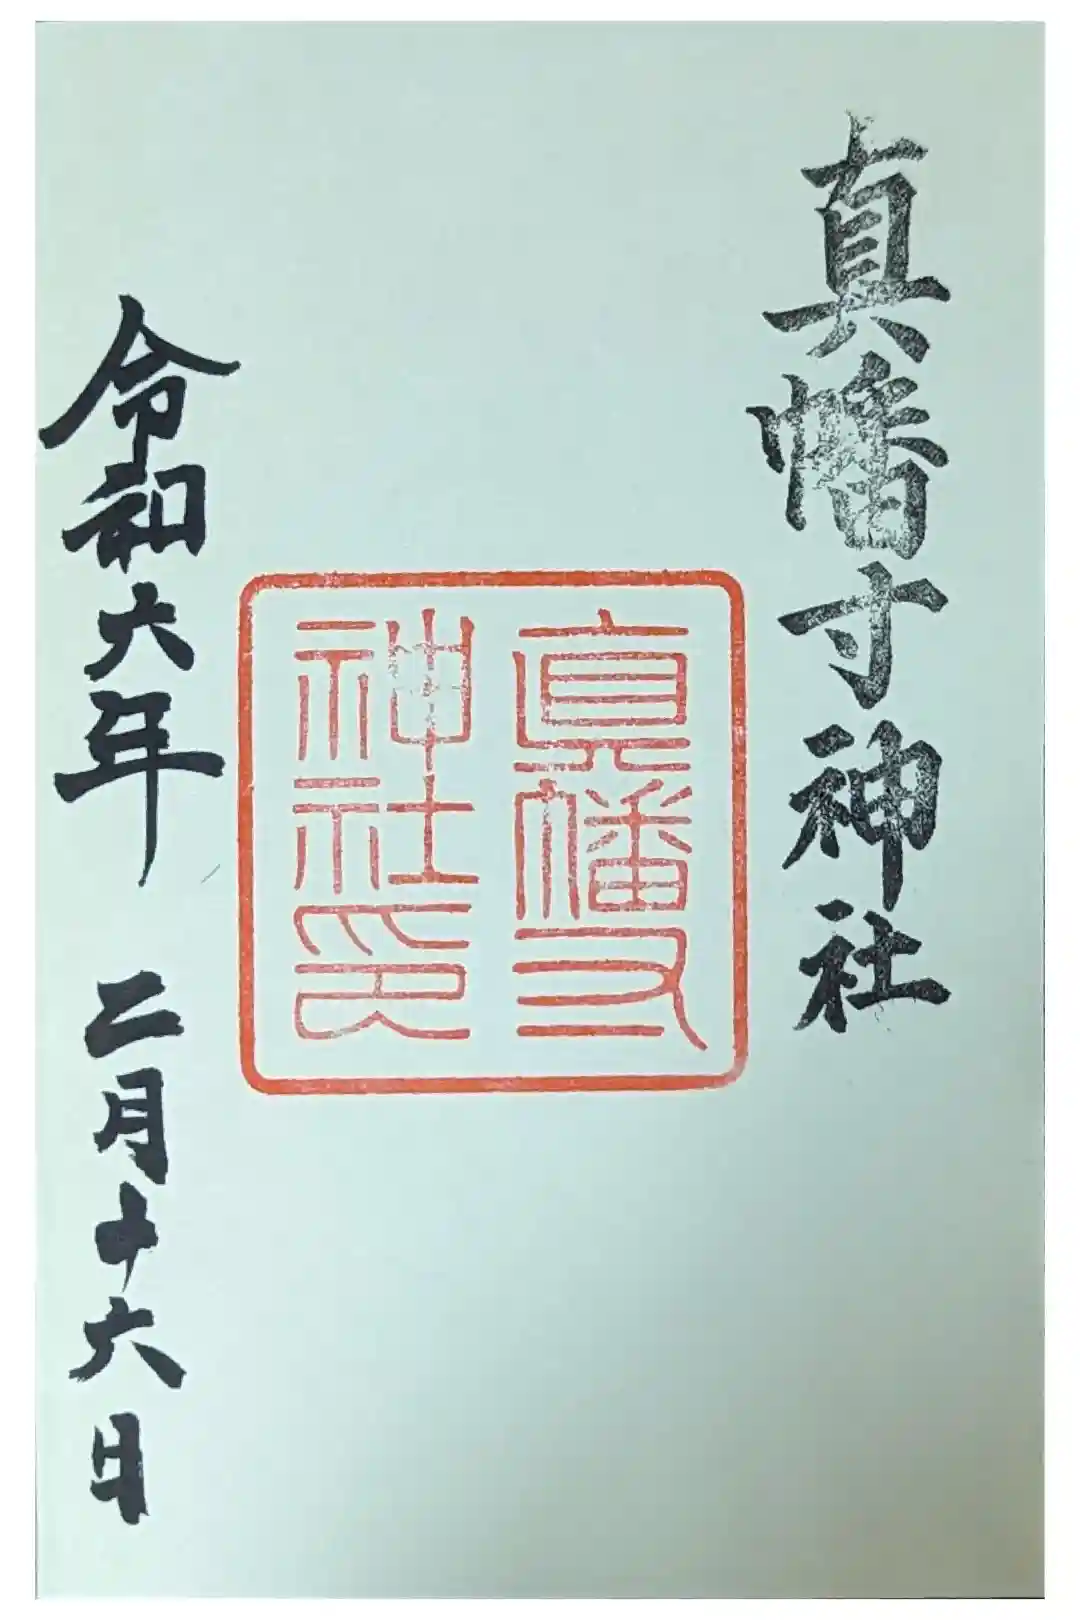 真幡寸神社
真幡寸
神社印
令和六年 二月十六日